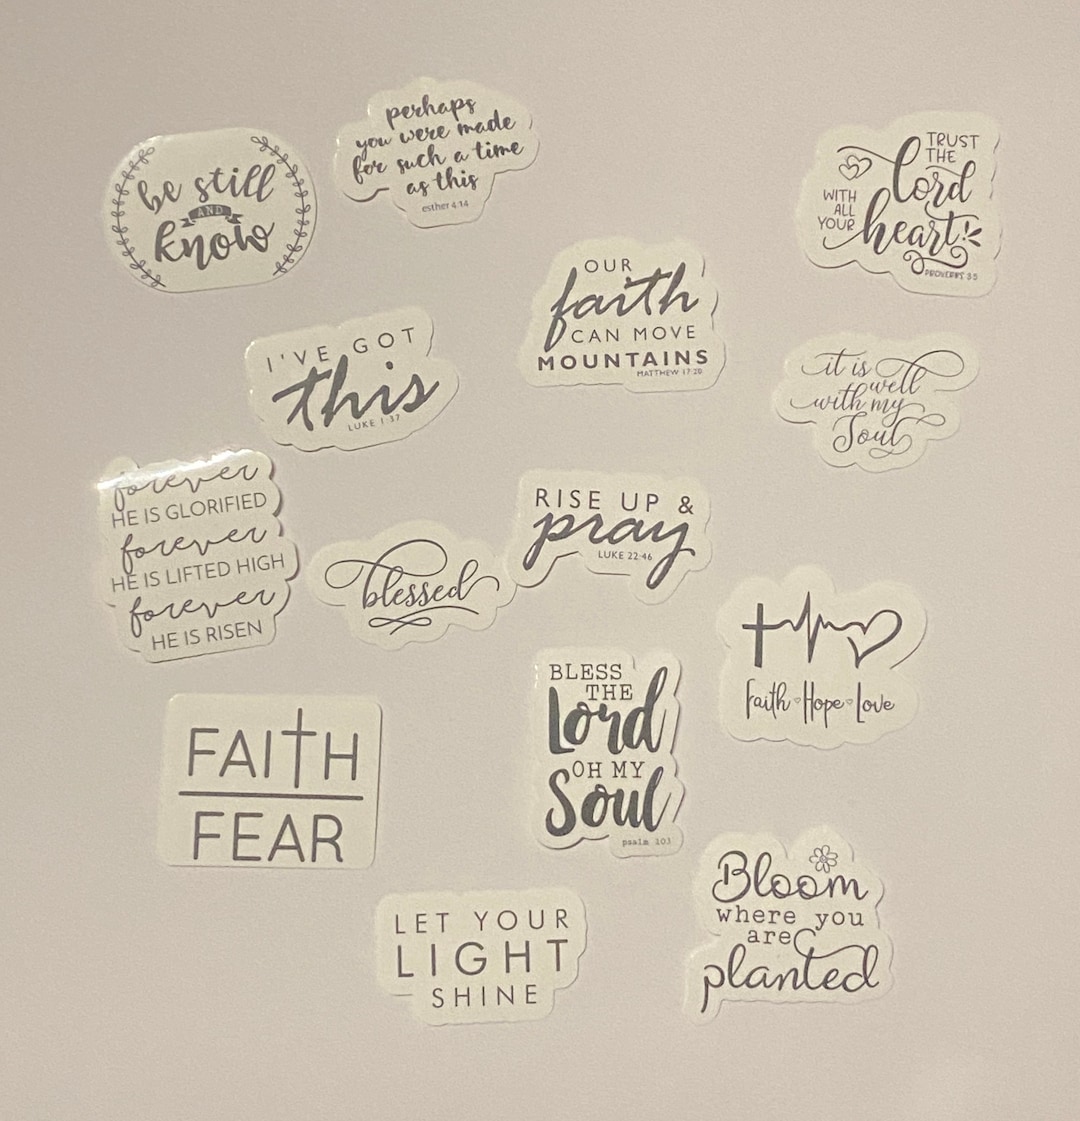 be still
AND
know
perhaps
you were made
for such a time
as this
esther 4:14
TRUST
THE
lord
WITH
ALL
YOUR
heart
PROVERBS 3:5
OUR
faith
CAN MOVE
MOUNTAINS
MATTHEW 17:20
I'VE GOT
this
LUKE 1:37
it is
well
with my
Soul
forever
HE IS GLORIFIED
forever
HE IS LIFTED HIGH
forever
HE IS RISEN
blessed
RISE UP &
pray
LUKE 22:46
Faith Hope Love
FAITH
FEAR
BLESS
THE
Lord
OH MY
Soul
psalm 103
Bloom
where you
are
planted
LET YOUR
LIGHT
SHINE